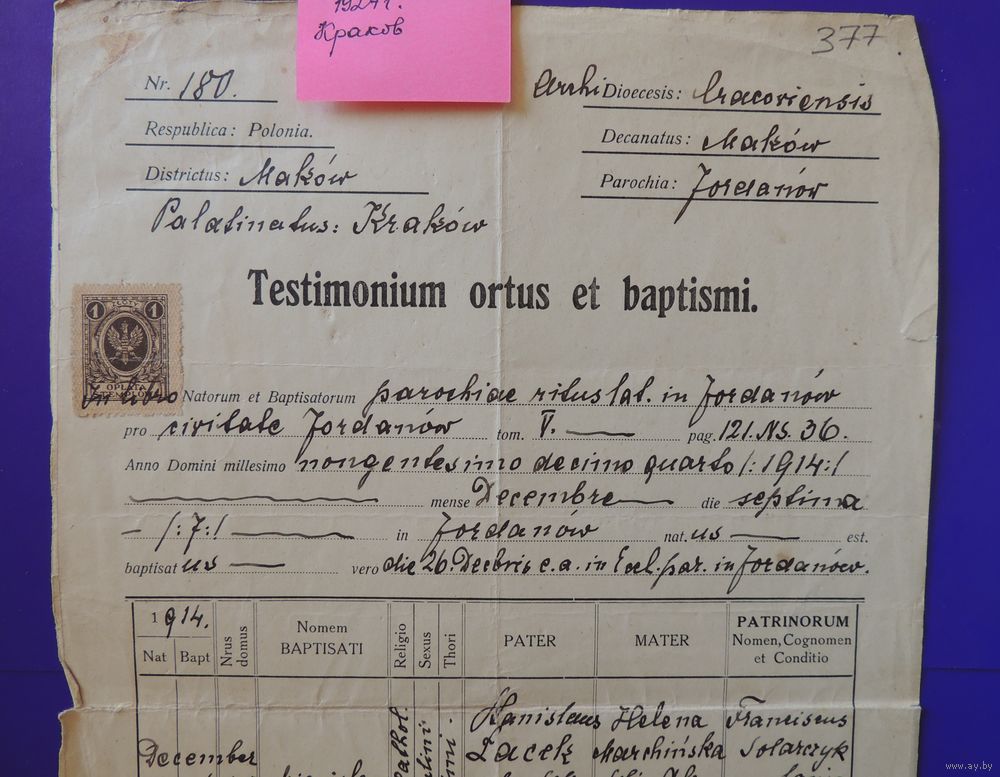 1924 г.
Краков
377
Nr. 180.
Archi Dioecesis: Cracoviensis
Respublica: Polonia.
Decanatus: Maków
Districtus: Maków
Parochia: Jordanów
Palatinatus: Kraków
Testimonium ortus et baptismi.
1 1
OPŁATA
In Libro Natorum et Baptisatorum parochiae ritus lat. in Jordanów
pro civitate Jordanów tom. V. pag. 121. NS. 36.
Anno Domini millesimo nongentesimo decimo quarto /:1914:/
mense Decembre die septima
/:7:/ in Jordanów nat. us est.
baptisat us vero die 26. Decbris e.a. in Eccl. par. in Jordanów.
1914.
Nat Bapt Nrus domus Nomem BAPTISATI Religio Sexus Thori PATER MATER PATRINORUM Nomen, Cognomen et Conditio
Stanislaus Helena Franciscus
December Pacek Marchińska Solarczyk
www.ay.by